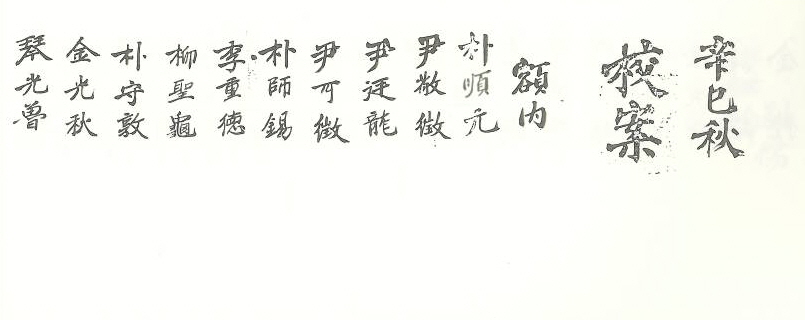 辛巳秋
校案
額内
朴順元
尹敬徵
尹莛龍
尹可徵
朴師錫
李重德
柳聖龜
朴守敦
金光秋
琴光曾